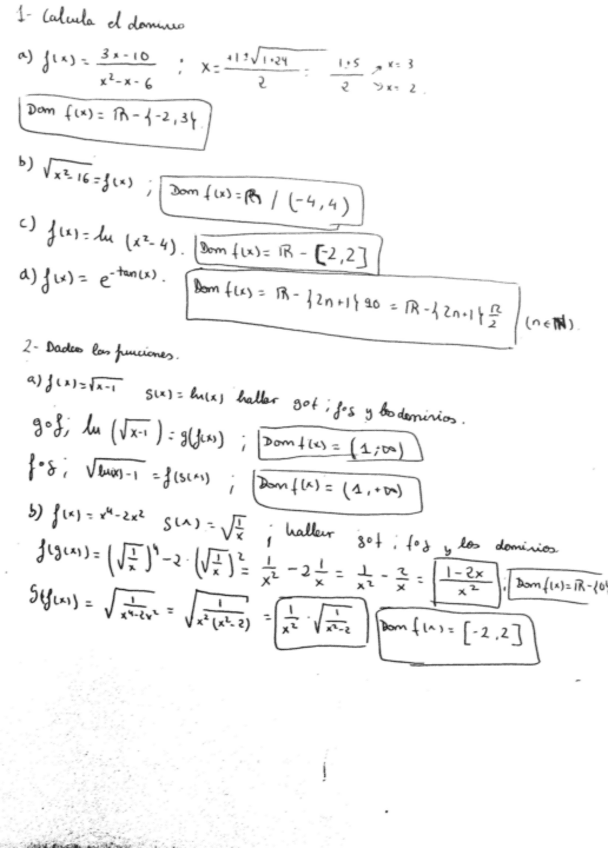 1- Calcula el dominio
a) f(x) = (3x-10)/(x²-x-6) ; x = (+1±√(1+24))/2 = (1±5)/2 ↗ x=3 ↘ x=2.
Dom f(x) = ℝ - {-2, 3}.
b) √(x²-16) = f(x) ; Dom f(x) = ℝ / (-4, 4)
c) f(x) = ln (x²-4). Dom f(x) = ℝ - [-2, 2]
d) f(x) = e^(-tan(x)). Dom f(x) = ℝ - {2n+1} 90 = ℝ - {2n+1} π/2 (n∈ℕ).
2- Dadas las funciones.
a) f(x) = √(x-1) g(x) = ln(x) hallar gof ; fog y los dominios.
gof; ln (√(x-1)) = g(f(x)) ; Dom f(x) = (1; ∞)
fog; √(ln(x)-1) = f(g(x)) ; Dom f(x) = (1, +∞)
b) f(x) = x⁴-2x² g(x) = √(1/x) ; hallar gof ; fog y los dominios
f(g(x)) = (√(1/x))⁴ - 2·(√(1/x))² = 1/x² - 2 1/x = 1/x² - 2/x = (1-2x)/x² ; Dom f(x) = ℝ - {0}
g(f(x)) = √(1/(x⁴-2x²)) = √(1/(x²(x²-2))) = 1/x² · √(1/(x²-2)) Dom f(x) = [-2, 2]